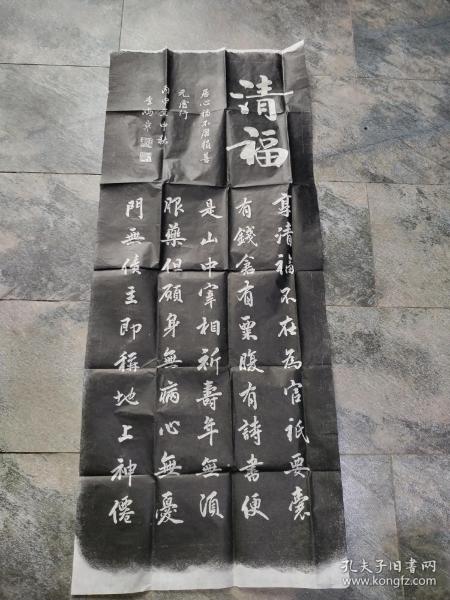 清福
享清福不在為官祇要囊
有錢倉有粟腹有詩書便
是山中宰相祈壽年無須
服藥但願身無病心無憂
門無債主即稱地上神僊
孔夫子旧书网
www.kongfz.com